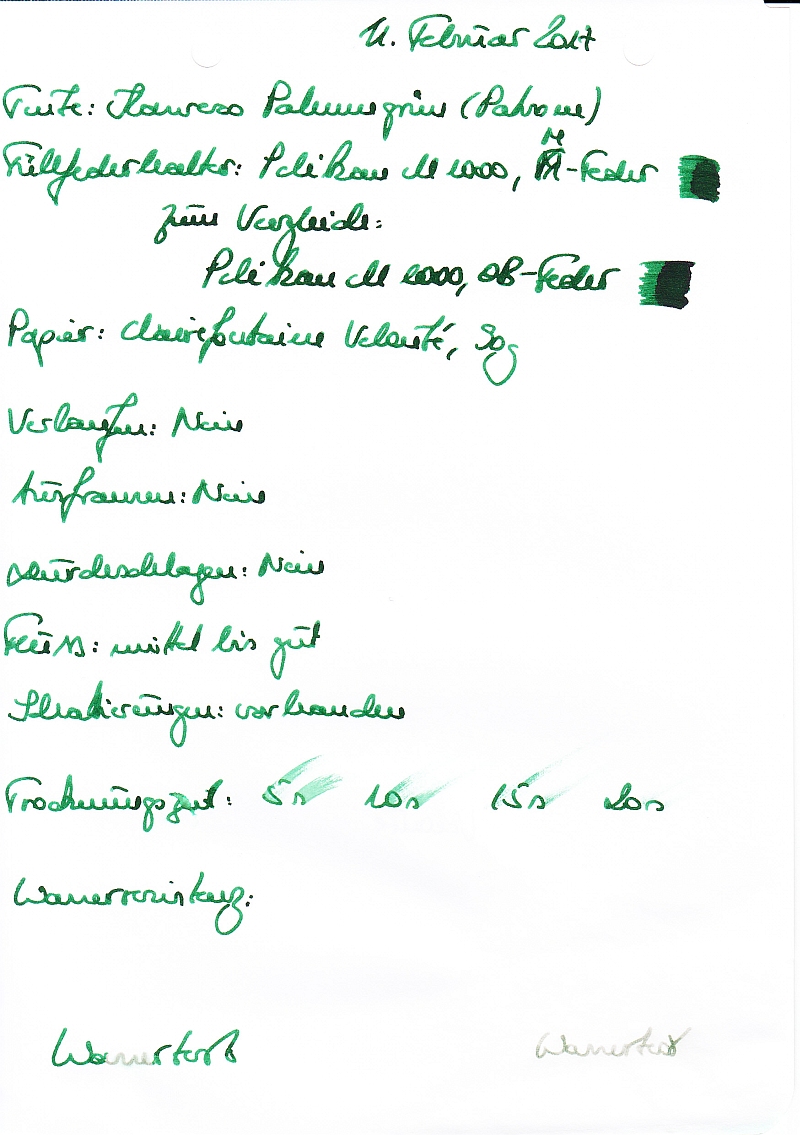 11. Februar 2017
Tinte: Kaweco Palmengrün (Patrone)
Füllfederhalter: Pelikan M 1000, M-Feder
zum Vergleich:
Pelikan M 1000, OB-Feder
Papier: Clairefontaine Velouté, 90g
Verlaufen: Nein
Ausfransen: Nein
Durchschlagen: Nein
Fluss: mittel bis gut
Schattierungen: vorhanden
Trocknungszeit: 5s 10s 15s 20s
Wasserresistenz:
Wassertest Wassertest